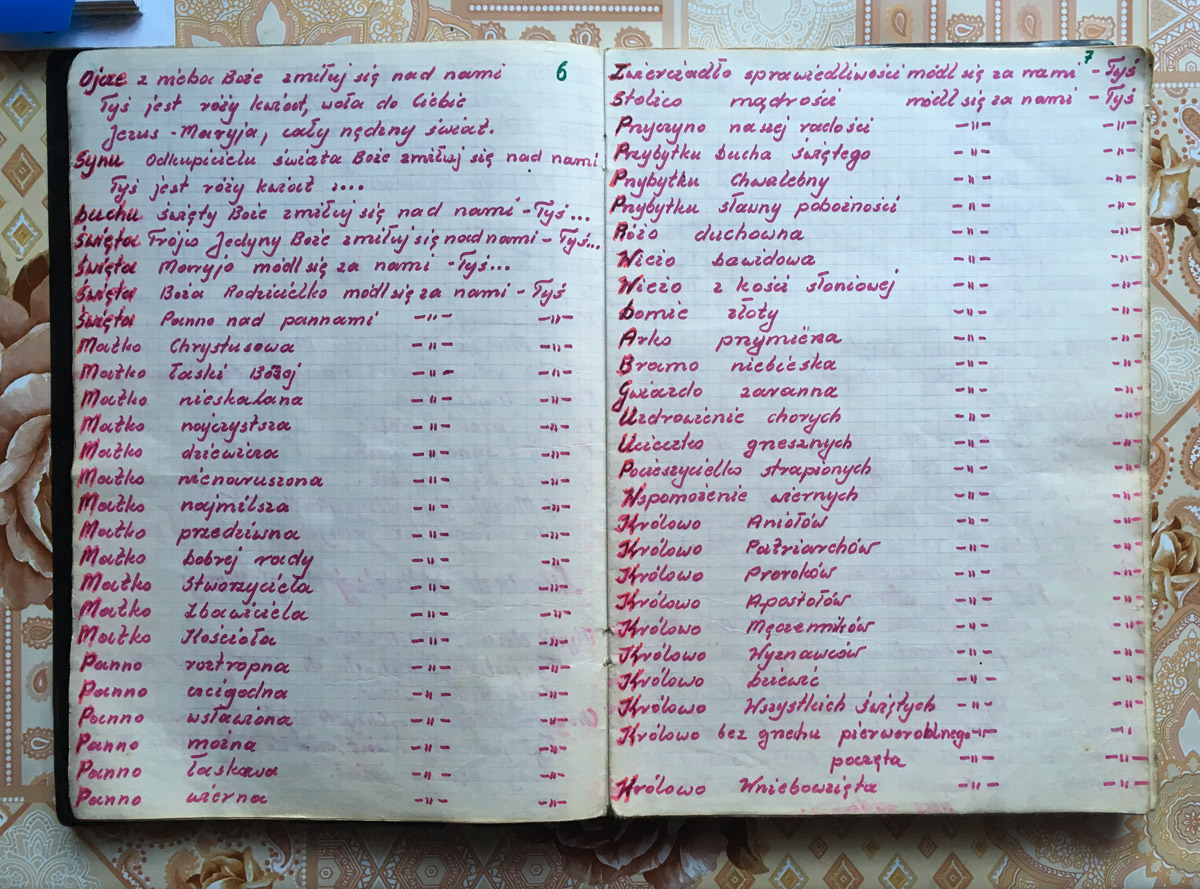 6
Ojcze z nieba Boże zmiłuj się nad nami
Tyś jest róży kwiat, woła do Ciebie
Jezus - Maryja, cały nędzny świat.
Synu Odkupicielu świata Boże zmiłuj się nad nami
Tyś jest róży kwiat ....
Duchu święty Boże zmiłuj się nad nami - Tyś...
Święta Trójco Jedyny Boże zmiłuj się nad nami - Tyś...
Święta Maryjo módl się za nami - Tyś...
Święta Boża Rodzicielko módl się za nami - Tyś
Święta Panno nad pannami -"- -"-
Matko Chrystusowa -"- -"-
Matko łaski Bożej -"- -"-
Matko nieskalana -"- -"-
Matko najczystsza -"- -"-
Matko dziewicza -"- -"-
Matko nienaruszona -"- -"-
Matko najmilsza -"- -"-
Matko przedziwna -"- -"-
Matko Dobrej rady -"- -"-
Matko Stworzyciela -"- -"-
Matko Zbawiciela -"- -"-
Matko Kościoła -"- -"-
Panno roztropna -"- -"-
Panno czcigodna -"- -"-
Panno wsławiona -"- -"-
Panno można -"- -"-
Panno łaskawa -"- -"-
Panno wierna -"- -"-
7
Zwierciadło sprawiedliwości módl się za nami - Tyś
Stolico mądrości módl się za nami - Tyś
Przyczyno naszej radości -"- -"-
Przybytku Ducha świętego -"- -"-
Przybytku Chwalebny -"- -"-
Przybytku sławny pobożności -"- -"-
Różo duchowna -"- -"-
Wieżo Dawidowa -"- -"-
Wieżo z kości słoniowej -"- -"-
Domie złoty -"- -"-
Arko przymierza -"- -"-
Bramo niebieska -"- -"-
Gwiazdo zaranna -"- -"-
Uzdrowienie chorych -"- -"-
Ucieczko grzesznych -"- -"-
Pocieszycielko strapionych -"- -"-
Wspomożenie wiernych -"- -"-
Królowo Aniołów -"- -"-
Królowo Patriarchów -"- -"-
Królowo Proroków -"- -"-
Królowo Apostołów -"- -"-
Królowo Męczenników -"- -"-
Królowo Wyznawców -"- -"-
Królowo Dziewic -"- -"-
Królowo Wszystkich świętych -"- -"-
Królowo bez grzechu pierworodnego -"-
poczęta -"- -"-
Królowo Wniebowzięta -"- -"-